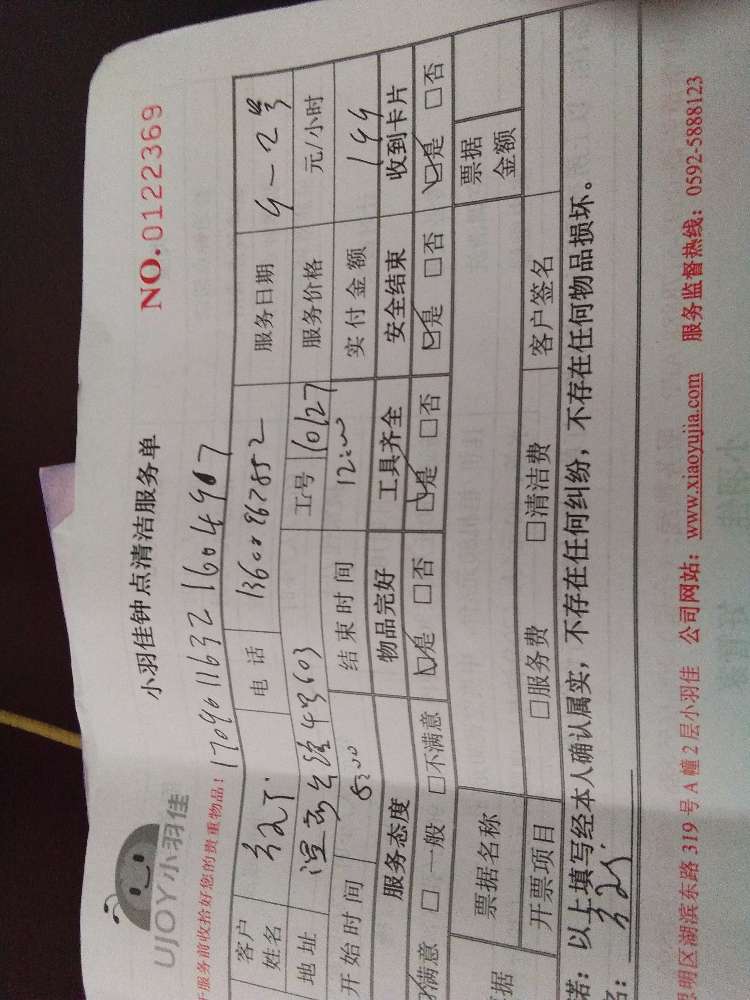 UJOY小羽佳
小羽佳钟点清洁服务单
NO.0122369
于服务前收拾好您的贵重物品! 17096116321604907
客户姓名 电话 服务日期 9-2号
地址 工号 10127 服务价格 元/小时
开始时间 8:00 结束时间 12:00 实付金额 144
服务态度 物品完好 工具齐全 安全结束 收到卡片
满意 □一般 □不满意 是 □否 是 □否 是 □否 是 □否
据 票据名称 票据金额
开票项目 □服务费 □清洁费 客户签名
诺: 以上填写经本人确认属实, 不存在任何纠纷, 不存在任何物品损坏。
名:
思明区湖滨东路 319 号 A 幢 2 层小羽佳 公司网站: www.xiaoyujia.com 服务监督热线: 0592-5888123